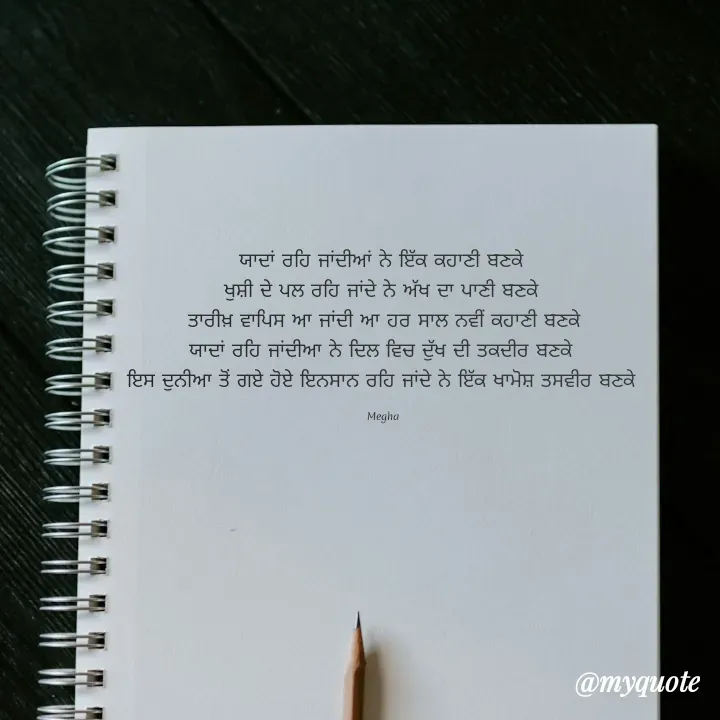 ਯਾਦਾਂ ਰਹਿ ਜਾਂਦੀਆਂ ਨੇ ਇੱਕ ਕਹਾਣੀ ਬਣਕੇ
ਖੁਸ਼ੀ ਦੇ ਪਲ ਰਹਿ ਜਾਂਦੇ ਨੇ ਅੱਖ ਦਾ ਪਾਣੀ ਬਣਕੇ
ਤਾਰੀਖ਼ ਵਾਪਿਸ ਆ ਜਾਂਦੀ ਆ ਹਰ ਸਾਲ ਨਵੀਂ ਕਹਾਣੀ ਬਣਕੇ
ਯਾਦਾਂ ਰਹਿ ਜਾਂਦੀਆ ਨੇ ਦਿਲ ਵਿਚ ਦੁੱਖ ਦੀ ਤਕਦੀਰ ਬਣਕੇ
ਇਸ ਦੁਨੀਆ ਤੋਂ ਗਏ ਹੋਏ ਇਨਸਾਨ ਰਹਿ ਜਾਂਦੇ ਨੇ ਇੱਕ ਖਾਮੋਸ਼ ਤਸਵੀਰ ਬਣਕੇ
Megha
@myquote